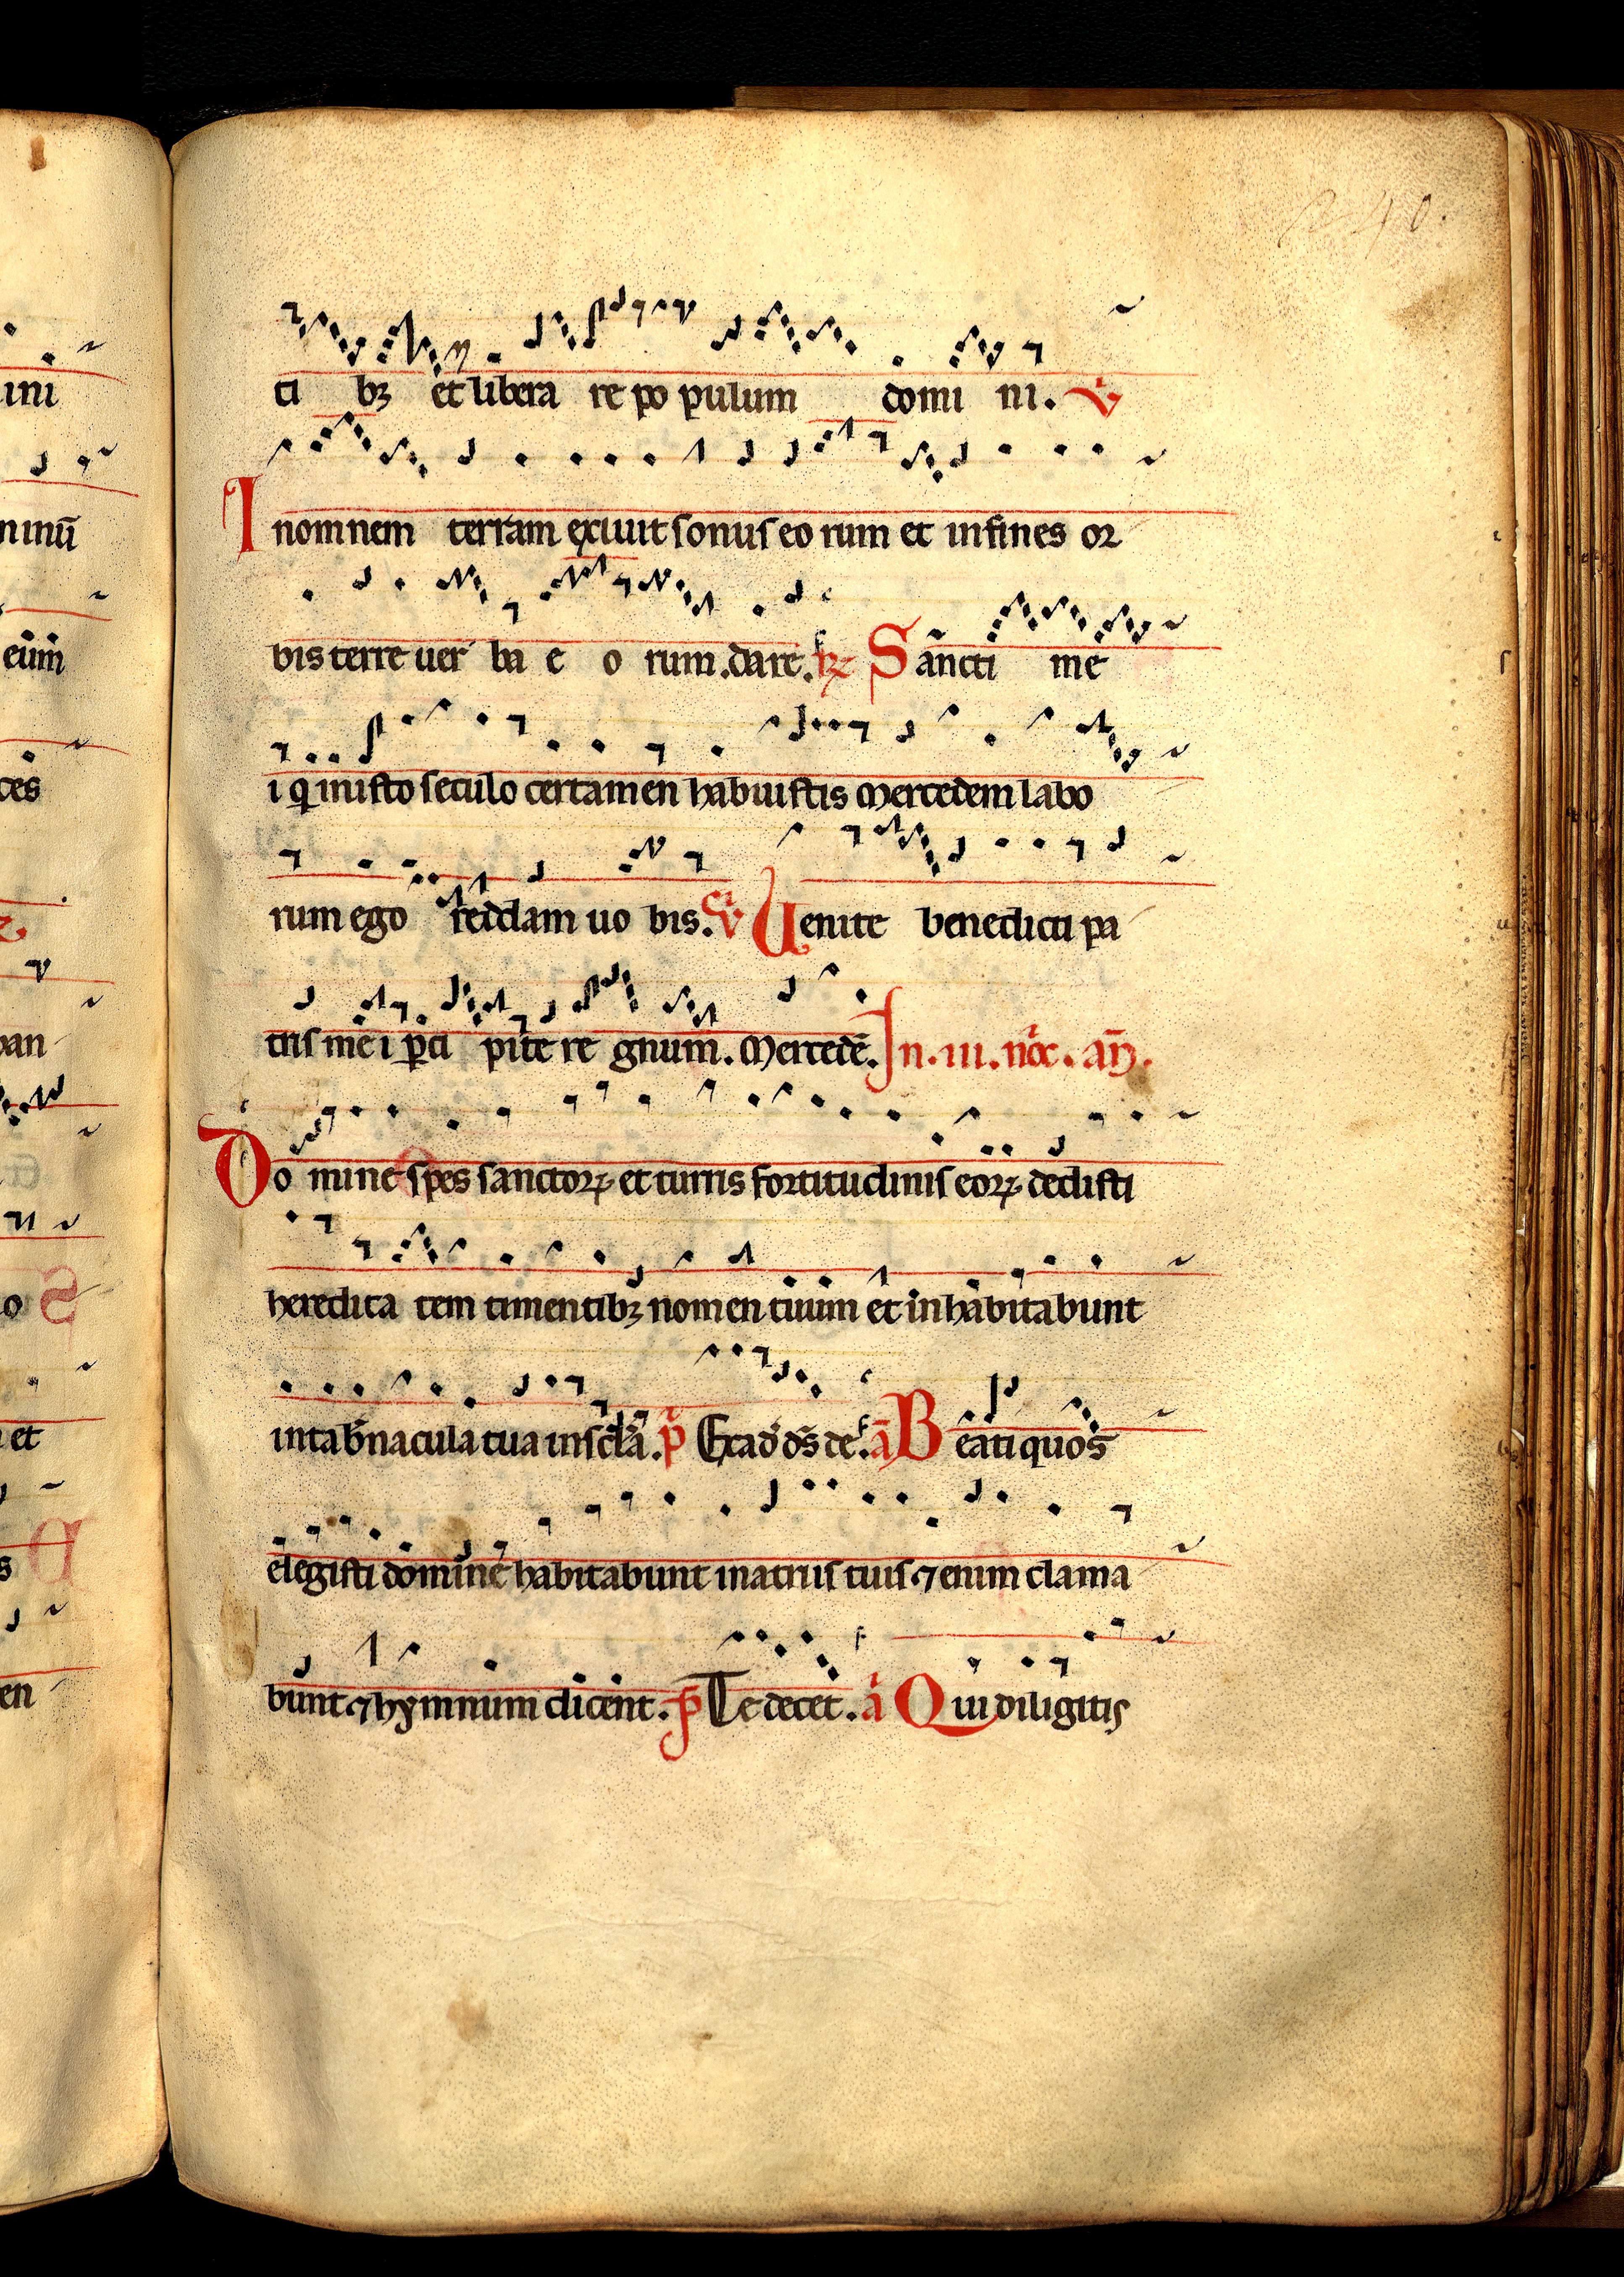 240.
ti bꝫ et libera re po pulum domi ni. ℣
Inomnem terram exiuit sonus eo rum et infines or
bis terre uer ba e o rum. dare. ℟ Sancti me
i q̇ inisto seculo certamen habuistis Mercedem labo
rum ego reddam uo bis. ℣ Uenite benedicti pa
tris me i ꝑci pite re gnum. Mercedē. In. iii. noc̄. an̄.
Do mine spes sanctoꝝ et turris fortitudinis eoꝝ dedisti
heredita tem timentibꝫ nomen tuum et inhabitabunt
intab̄nacula tua insc̄la. p̄ Exad̄ ds̄ de. a̅ Beati quos
elegisti domine habitabunt inatriis tuis ⁊ enim clama
bunt ⁊ hymnum dicent. p̄ Te decet. a̅ Qui diligitis
ini
ninū
eum
ces
pan
o S
et
s D
en